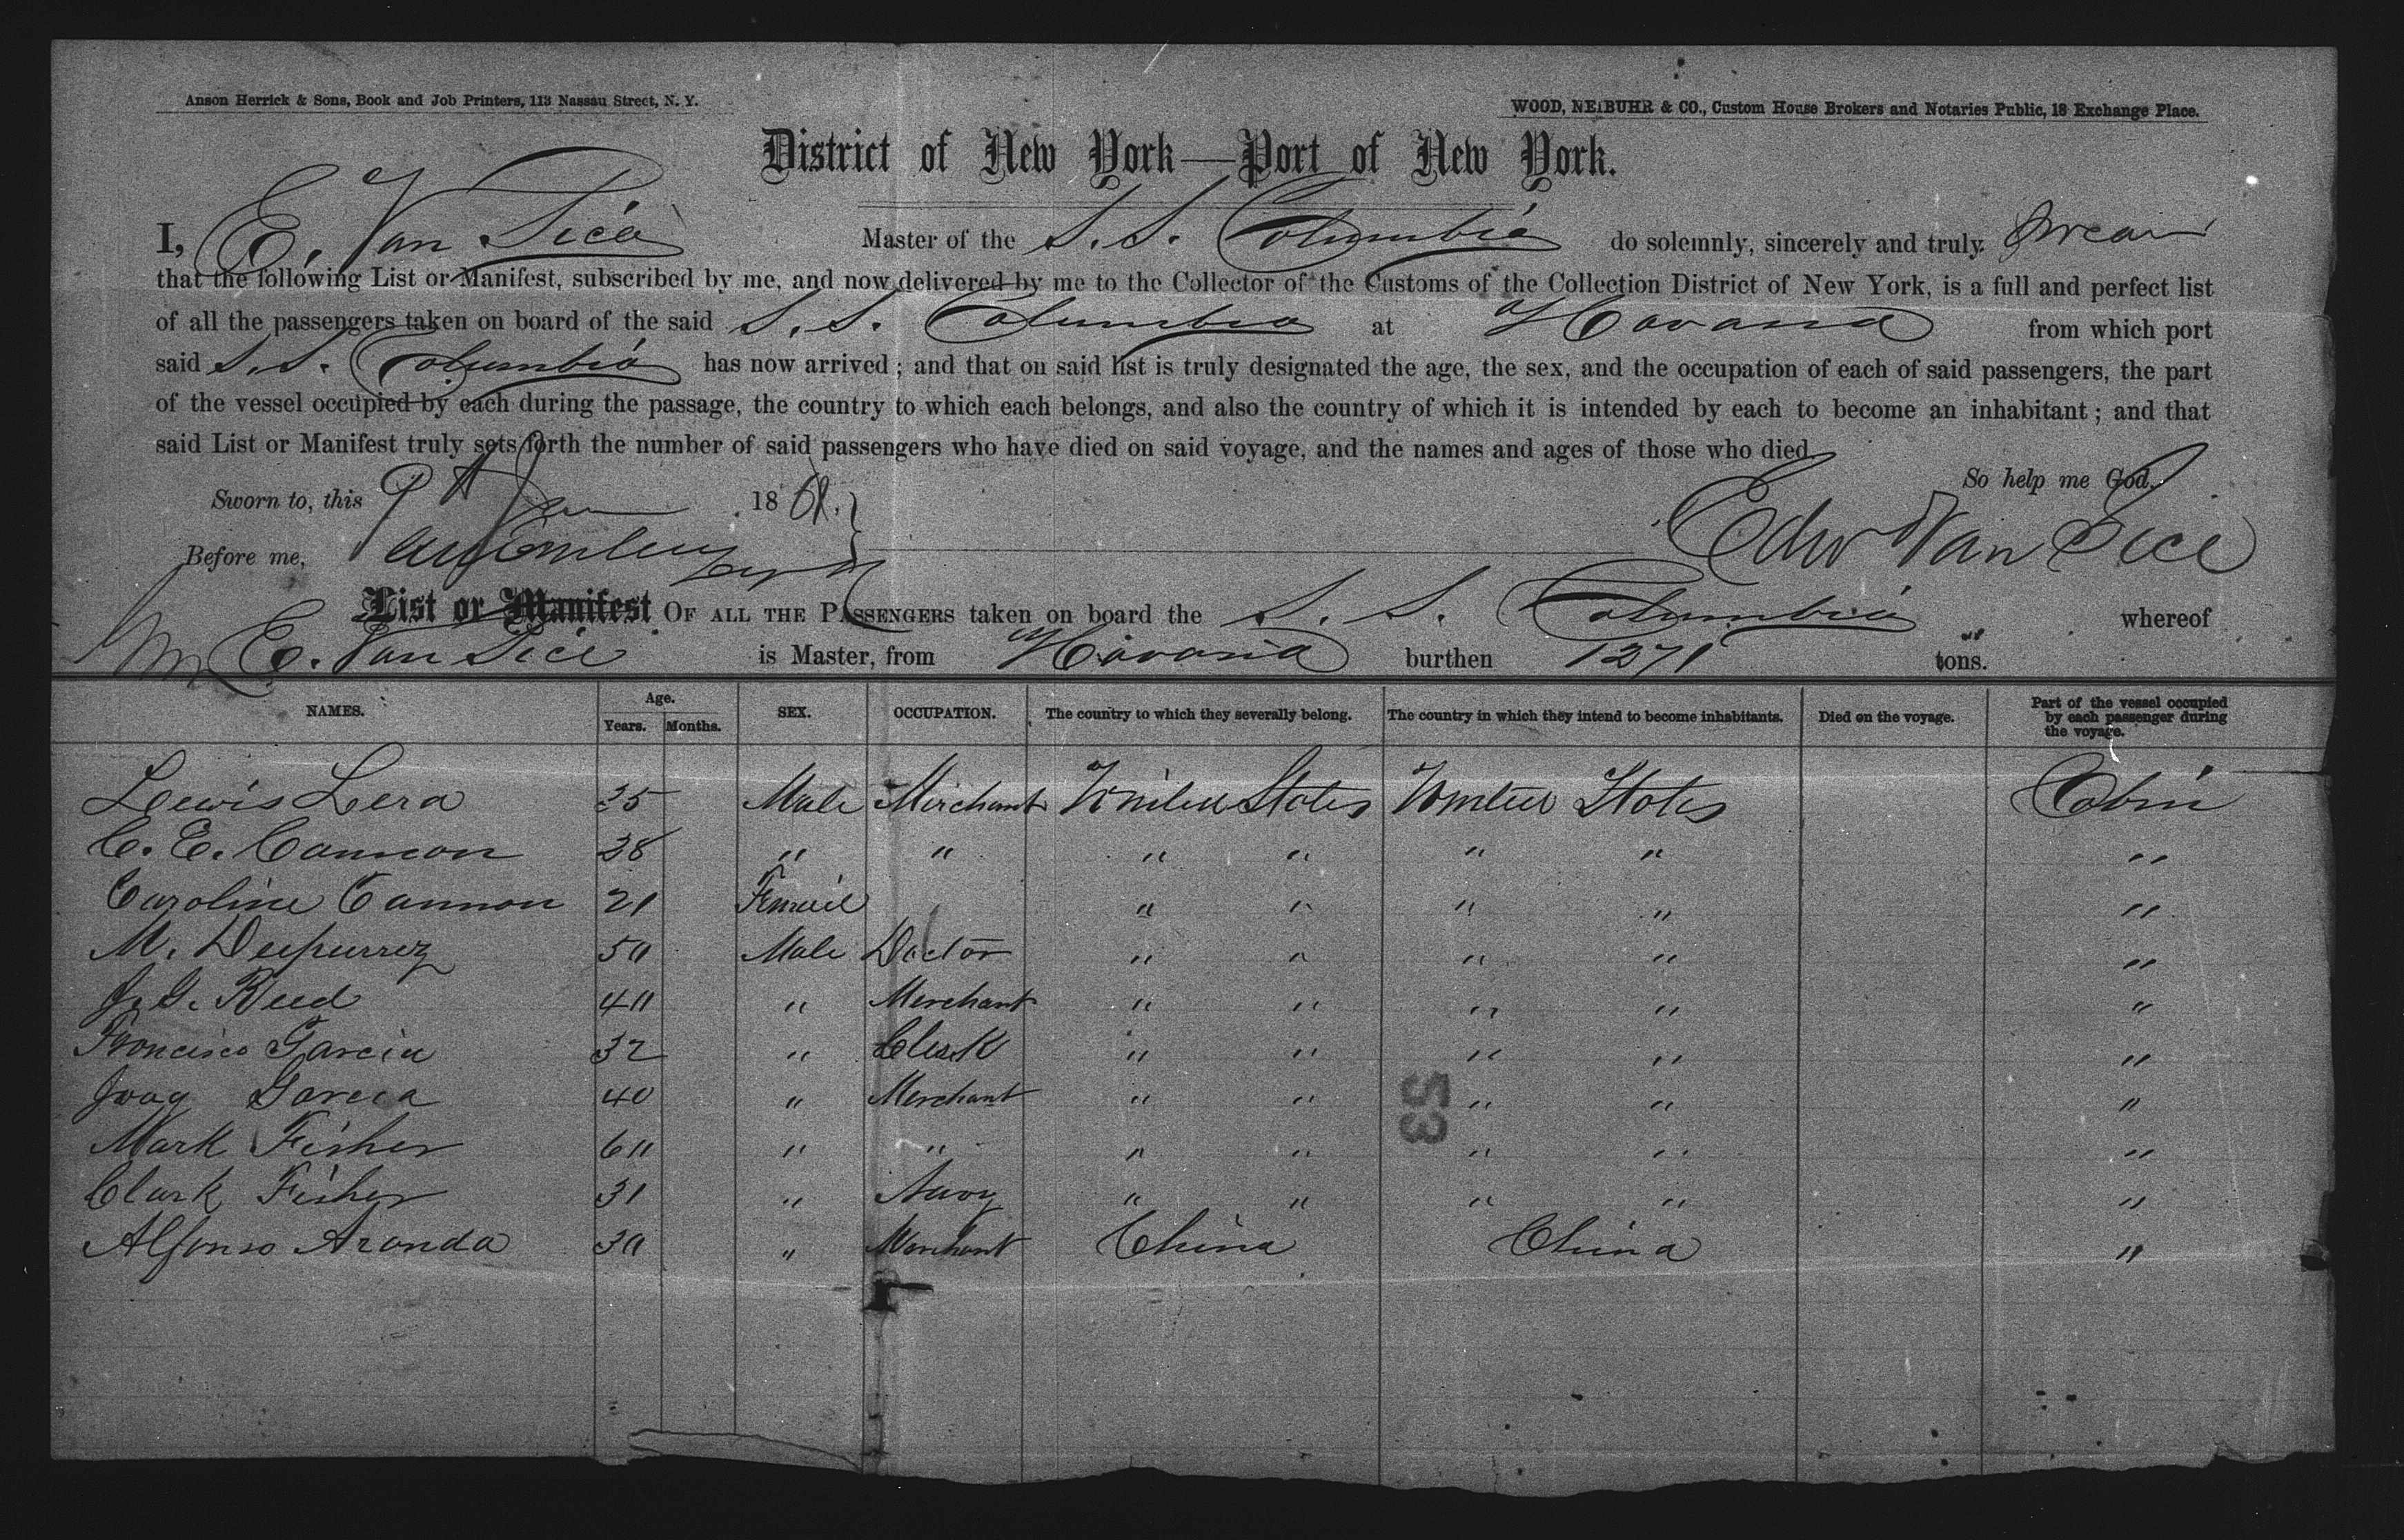 Anson Herrick & Sons, Book and Job Printers, 113 Nassau Street, N. Y.
WOOD, NEIBUHR & CO., Custom House Brokers and Notaries Public, 18 Exchange Place.
District of New York—Port of New York.
I, E. Van Sice Master of the S. S. Columbia do solemnly, sincerely and truly swear
that the following List or Manifest, subscribed by me, and now delivered by me to the Collector of the Customs of the Collection District of New York, is a full and perfect list
of all the passengers taken on board of the said S. S. Columbia at Havana from which port
said S. S. Columbia has now arrived; and that on said list is truly designated the age, the sex, and the occupation of each of said passengers, the part
of the vessel occupied by each during the passage, the country to which each belongs, and also the country of which it is intended by each to become an inhabitant; and that
said List or Manifest truly sets forth the number of said passengers who have died on said voyage, and the names and ages of those who died.
So help me God.
Sworn to, this 9th Jan 186
Before me,
Edw Van Sice
List or Manifest OF ALL THE PASSENGERS taken on board the S. S. Columbia whereof
E. Van Sice is Master, from Havana burthen 1271 tons.
NAMES. Age. Years. Months. SEX. OCCUPATION. The country to which they severally belong. The country in which they intend to become inhabitants. Died on the voyage. Part of the vessel occupied by each passenger during the voyage.
Lewis Lera 35 Male Merchant United States United States Cabin
C. E. Cannon 38 " " " " " " "
Caroline Cannon 21 Female " " " " "
M. 50 Male Doctor " " " " "
J. G. Reed 40 " Merchant " " " " "
Francisco Garcia 32 " Clerk " " " " "
Garcia 40 " Merchant " " " " "
Mark Fisher 60 " " " " " " "
Clark Fisher 31 " Navy " " " " "
Alfonso Aranda 30 " Merchant China China "
53